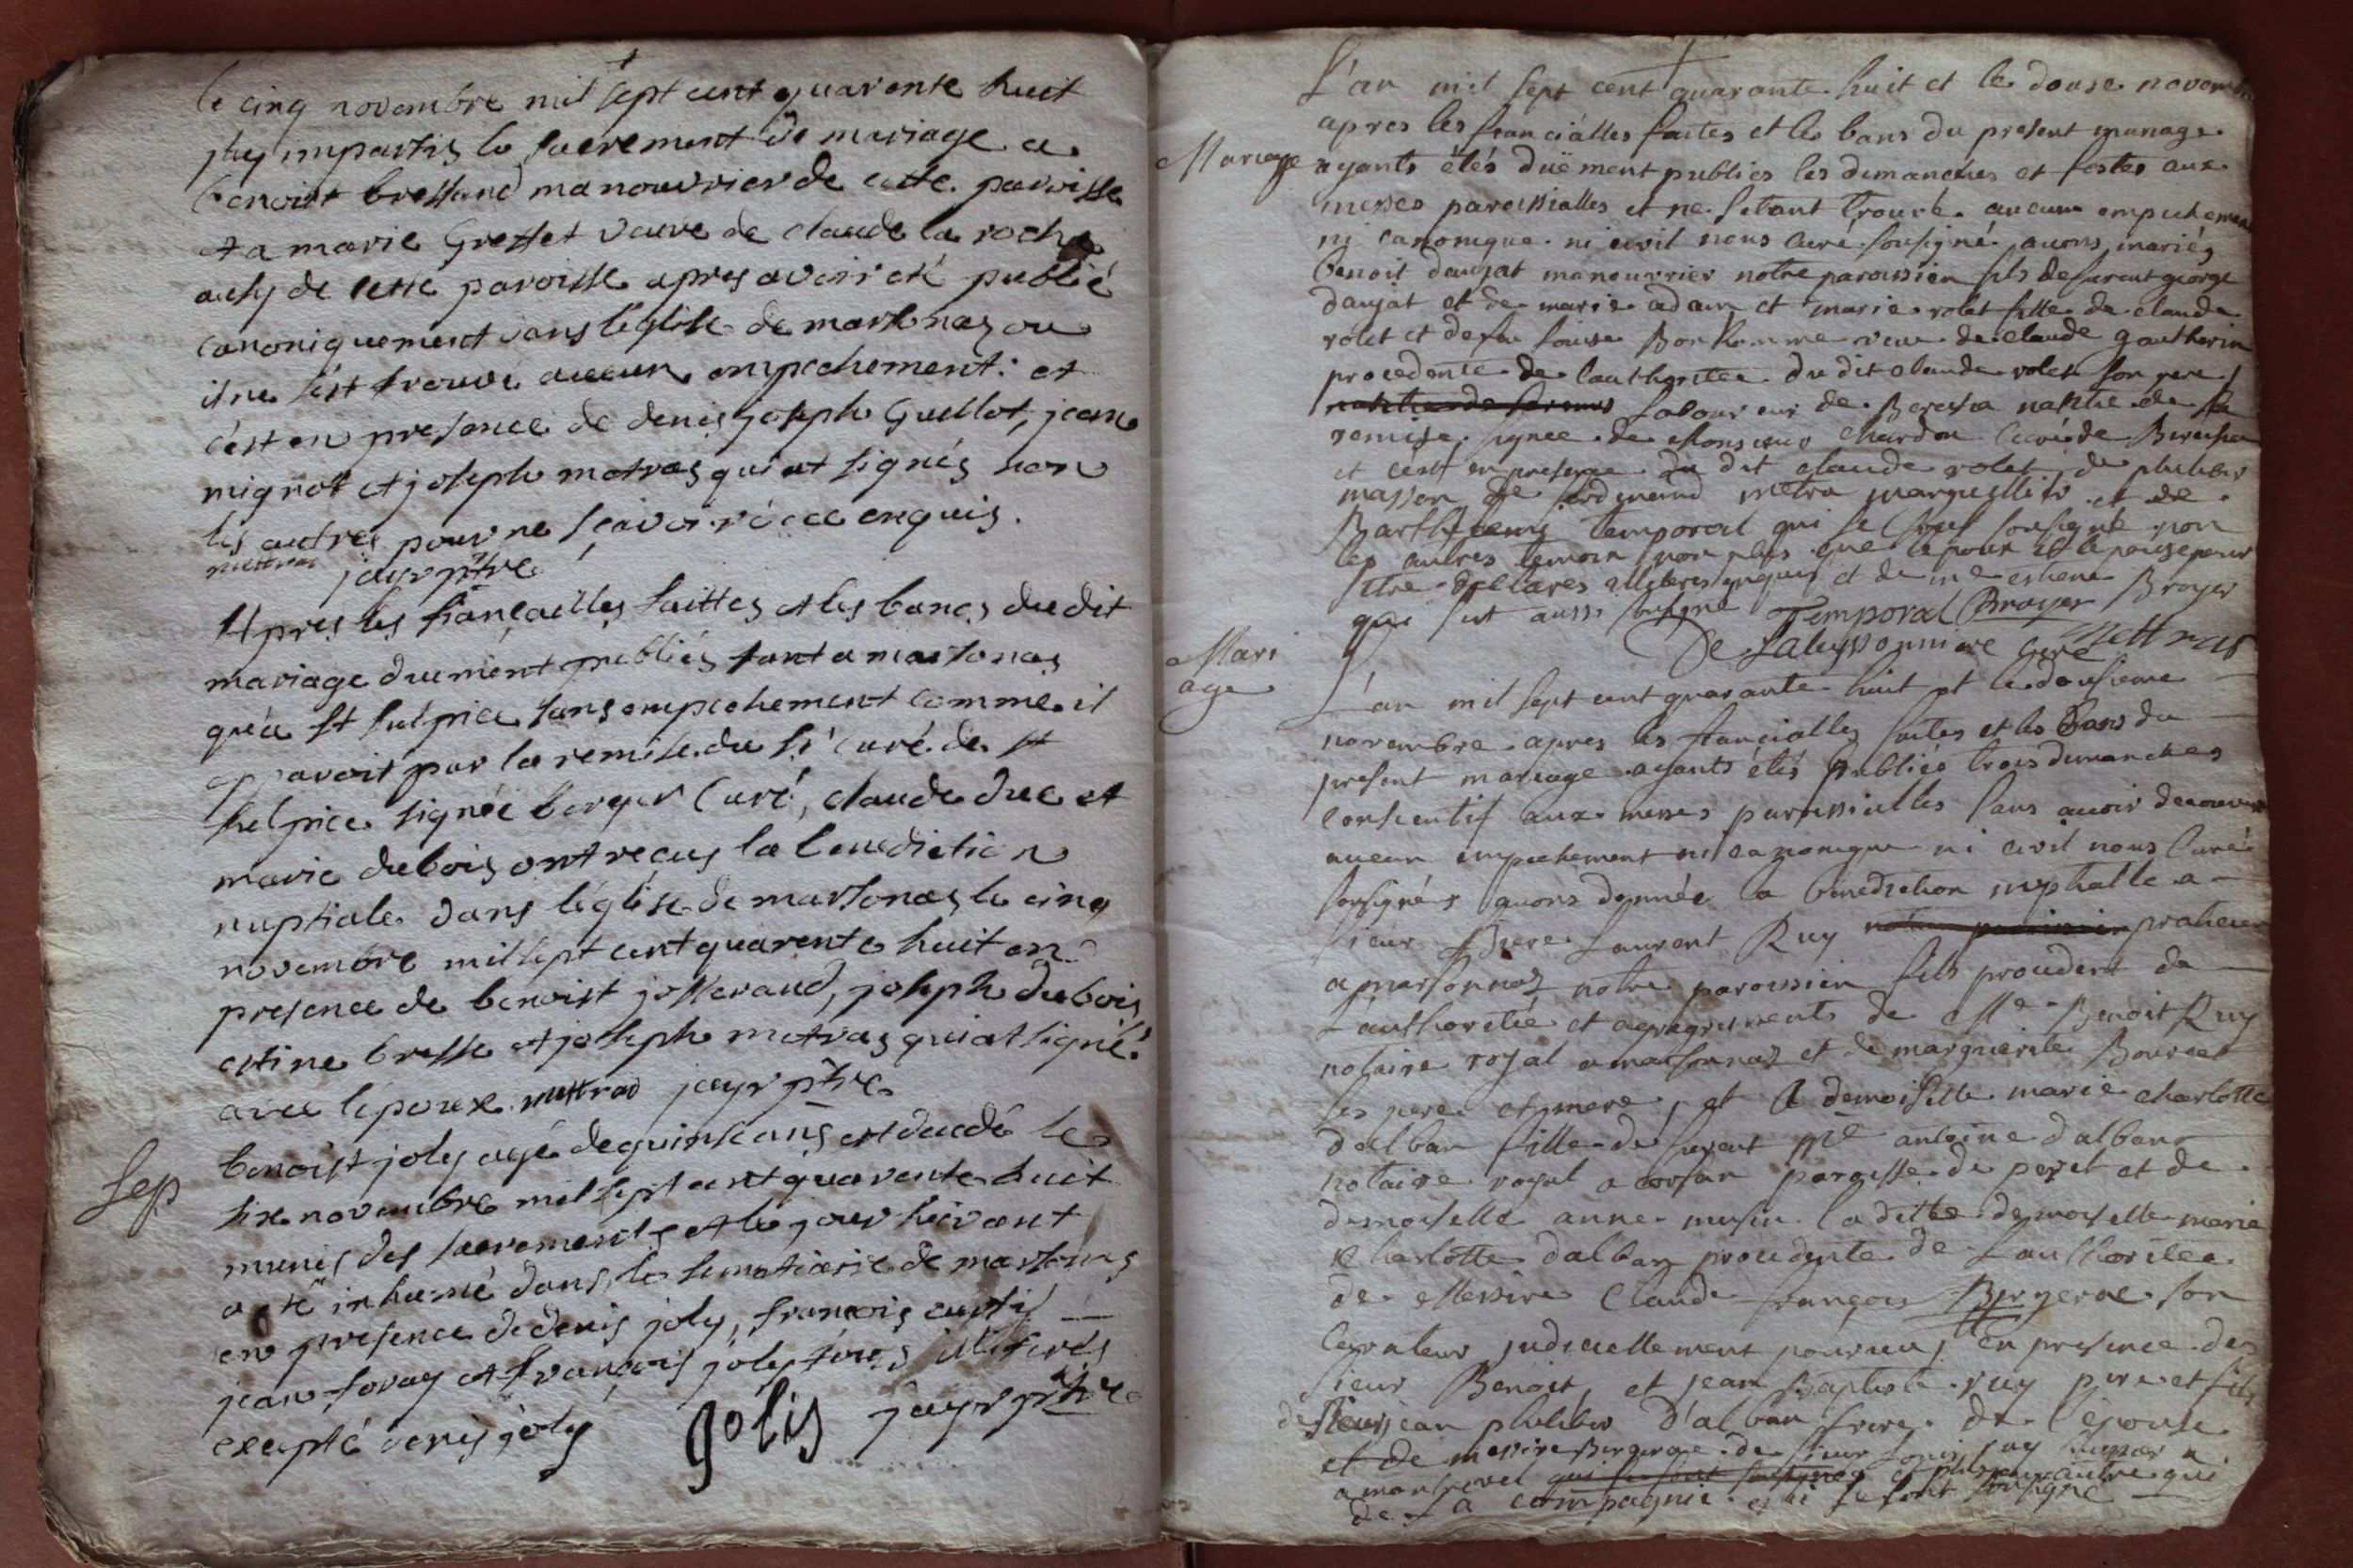 le cinq novembre mil sept cent quarente huit
j'hey impartis le sacrement de mariage a
benoist bressand manouvrier de cette paroisse
et a marie Gresset veuve de claude la roche
ausy de cette paroisse apres avoir eté publié
canoniquement dans l'eglise de marsonas ou
il ne s'est trouvé aucun empechement: et
c'est en presence de denis joseph Guillot, jean
mignot et joseph matras qui at signés non
les autres pour ne sçavoir de ce enquis.
mettras jayr ptre
Apres les fiançailles faittes et les bancs du dit
mariage duement publiés tant a marsonas
qu'a St sulpice sans empechement comme il
aparoit par la remise du Sr curé de St
sulpice signée berger Curé, claude duc et
marie dubois ont reçus la benediction
nuptiale dans l'église de marsonas le cinq
novembre mil sept cent quarente huit en
presence de benoist josserand, joseph dubois
estine bresse et joseph matras qui at signé
avec lepoux mettrad jayr ptre
Sep
benoist joly agé de quinse ans est decedé le
six novembre mil sept cent quarente huit
munis des sacrements et le jour suivant
a eté inhumé dans le semetiere de marsonas
en presence de denis joly, francois curtil
jean foray et francois joly tous illiterés
excepté denis joly golis jayr ptre
L'an mil sept cent quarante huit et le douse novembre
Mariage
apres les fianciálles faites et les bans du present mariage
ayants étés duëment publies les dimanches et festes aux
messes paroissialles et ne setant trouvé aucun empechement
ni canonique ni civil nous curé sousigné avons mariés
benoit daujat manouvrier notre paroissien fils de furent george
daujat et de marie adam et marie rolet fille de claude
rolet et defeu louise Bonhomme veuve de claude gautherin
procedente de l'authoritee du dit claude rolet son pere
laboureur de Beresia
remise signee de Monsieur chardon curé de
et c'est en presence du dit claude rolet, de philiber
masson de ferdinand metra marguillier et de
Barthelemy Temporal qui se sont sousigné non
les autres temoin non plus que lepoux et lepouse pour
setre declares illiteres enquis et de me estiene Broyer
qui sest aussi sousigné Temporal Broyer
De Labussonniere curé mettras
Mari
age
L'an mil sept cent quarante huit et le dousieme
novembre apres les fiancialles faites et les bans du
present mariage ayants étés publiés trois dimanches
consecutif aux messes paroissialles sans avoir decouvert
aucun empechement ni canonique ni civil nous Curé
sousignés avons donnée la benediction nuptialle a
sieur Piere Laurent Ruy praticien
a marsonnas notre paroissien fils procedent de
l'authoritée et agregrements de Me Benoit Ruy
notaire royal a marsonnas et de marguerite Bourcet
ses pere et mere, et a demoiselle marie charlotte
dalban fille de furent Me antoine dalban
notaire royal a corsan paroisse de perel et de
demoiselle anne musin la ditte demoiselle marie
charlotte dalban procedente de L'authoritee
de Messire Claude françois Bergerac son
curateur judiciellement pourveu, En presence des
sieur Benoit, et jean Baptiste ruy pere et fils
de sieur jean philiber D'alban frere de l'epouse
et de messire Bergerac de sieur Louis
a montrevel qui se sont sousignes et plusieurs autre qui
de la compagnie qui se sont sousigné